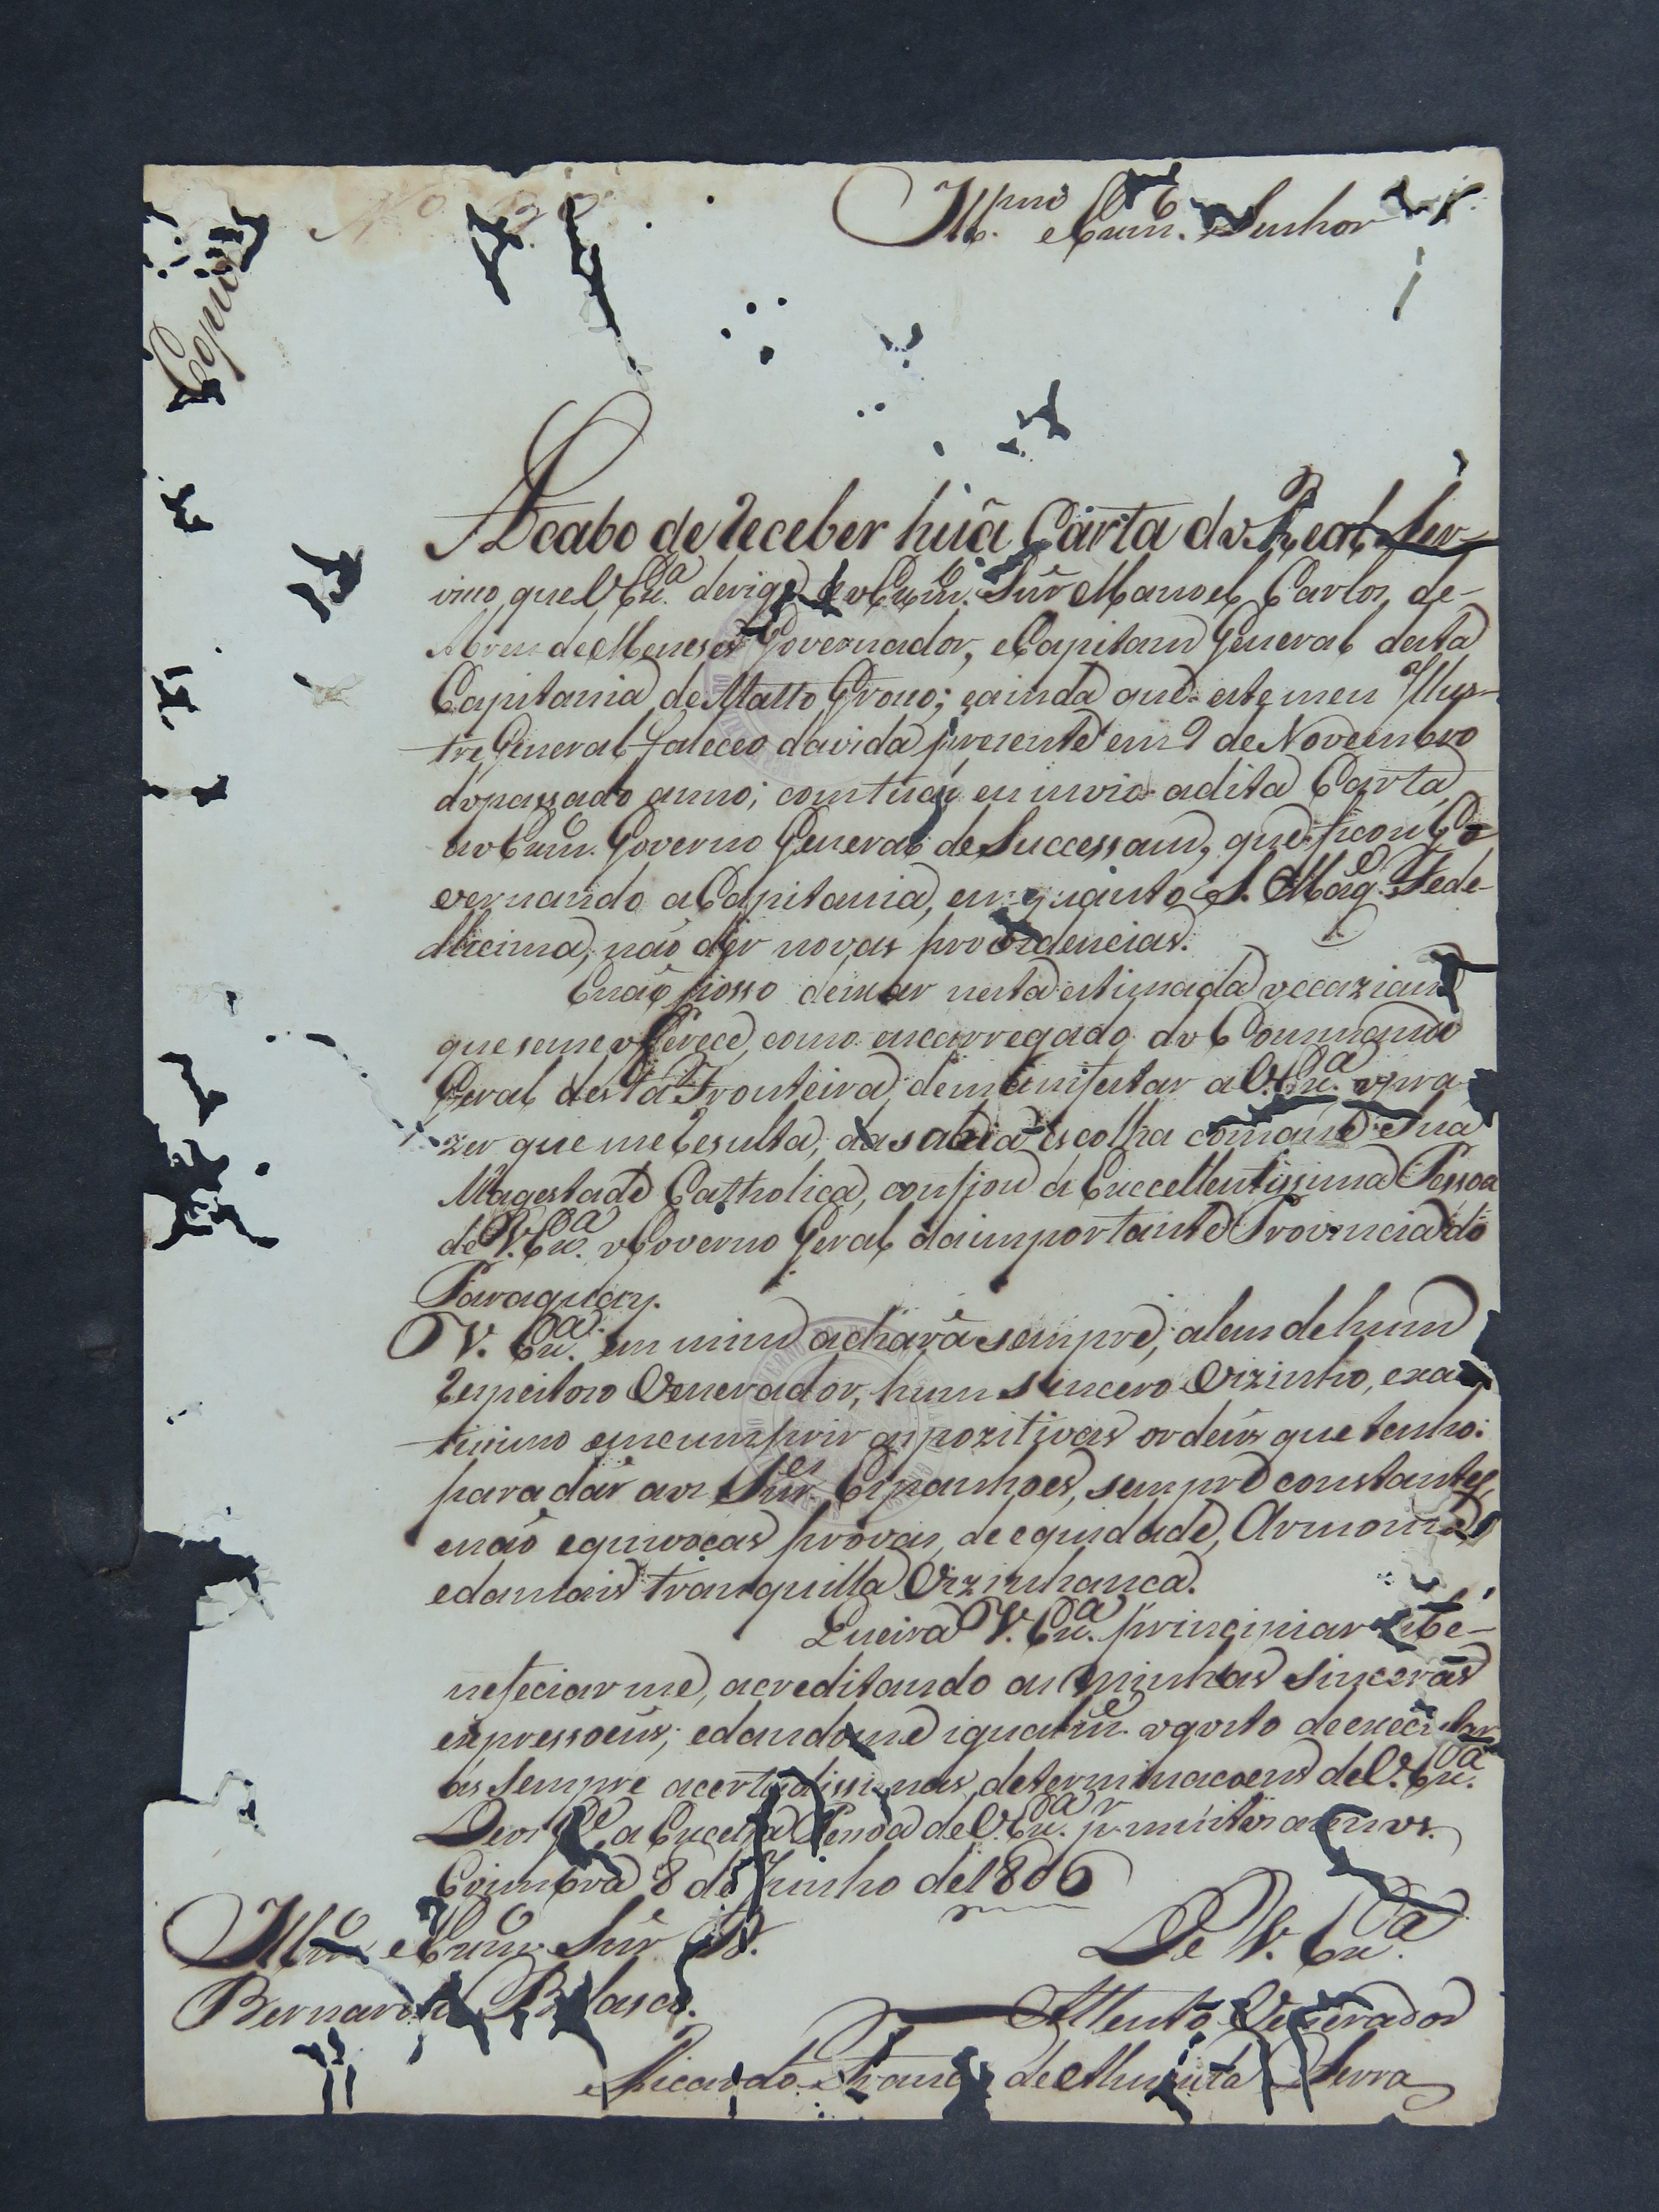 Copia
Illmo e Exmo. Senhor
Acabo de receber huã Carta do Real Ser-
viço, que V. Exa. derige ao Exmo. Snr. Manoel Carlos de
Abreu de Meneses Governador, e Capitam General desta
Capitania de Matto Groço; e ainda que este meu Illus-
tre General faleceo da vida prezente em 9 de Novembro
do passado anno; com tudo eu invio a dita Carta
ao Exmo. Governo General de Successam, que ficou Go-
vernando a Capitania, em quanto S. Mage. Fede-
llicima, não der novas providencias.
E não posso deixar nesta estimada occaziam
que se me offerece, como encarregado do Commando
Geral desta Fronteira, de manifestar a V. Exa. o pra-
zer que me rezulta, da sabia escolha com que Sua
Magestade Catholica, confiou a Excellentissima Pessoa
de V. Exa. o Governo Geral da importante Provincia do
Paraguay.
V. Exa. em mim achará sempre, alem de hum
respeitozo Venerador, hum sincero Vizinho, exa
ticimo em cumprir as pozitivas ordens que tenho:
para dár aos Snres. Espanhoes, sempre constantes,
e não equivocas provas, de equidade, Armonia
e da mais tranquilla Vizinhanca.
Queira V. Exa. principiar a be-
neficiar me, acreditando as minhas sinceras
expressoens; e dando me igualme. o gosto de executar
as sempre acertadissimas determinacoens de V. Exa.
Deos Ge. a Excelsa Pessoa de V. Exa. pr. muitos annos.
Coimbra 8 de Junho de 1806
Illmo e Exmo Snr D.
Bernardo Velasco.
De V. Exa.
Attento Venerador
Ricardo Franco de Almeida Serra